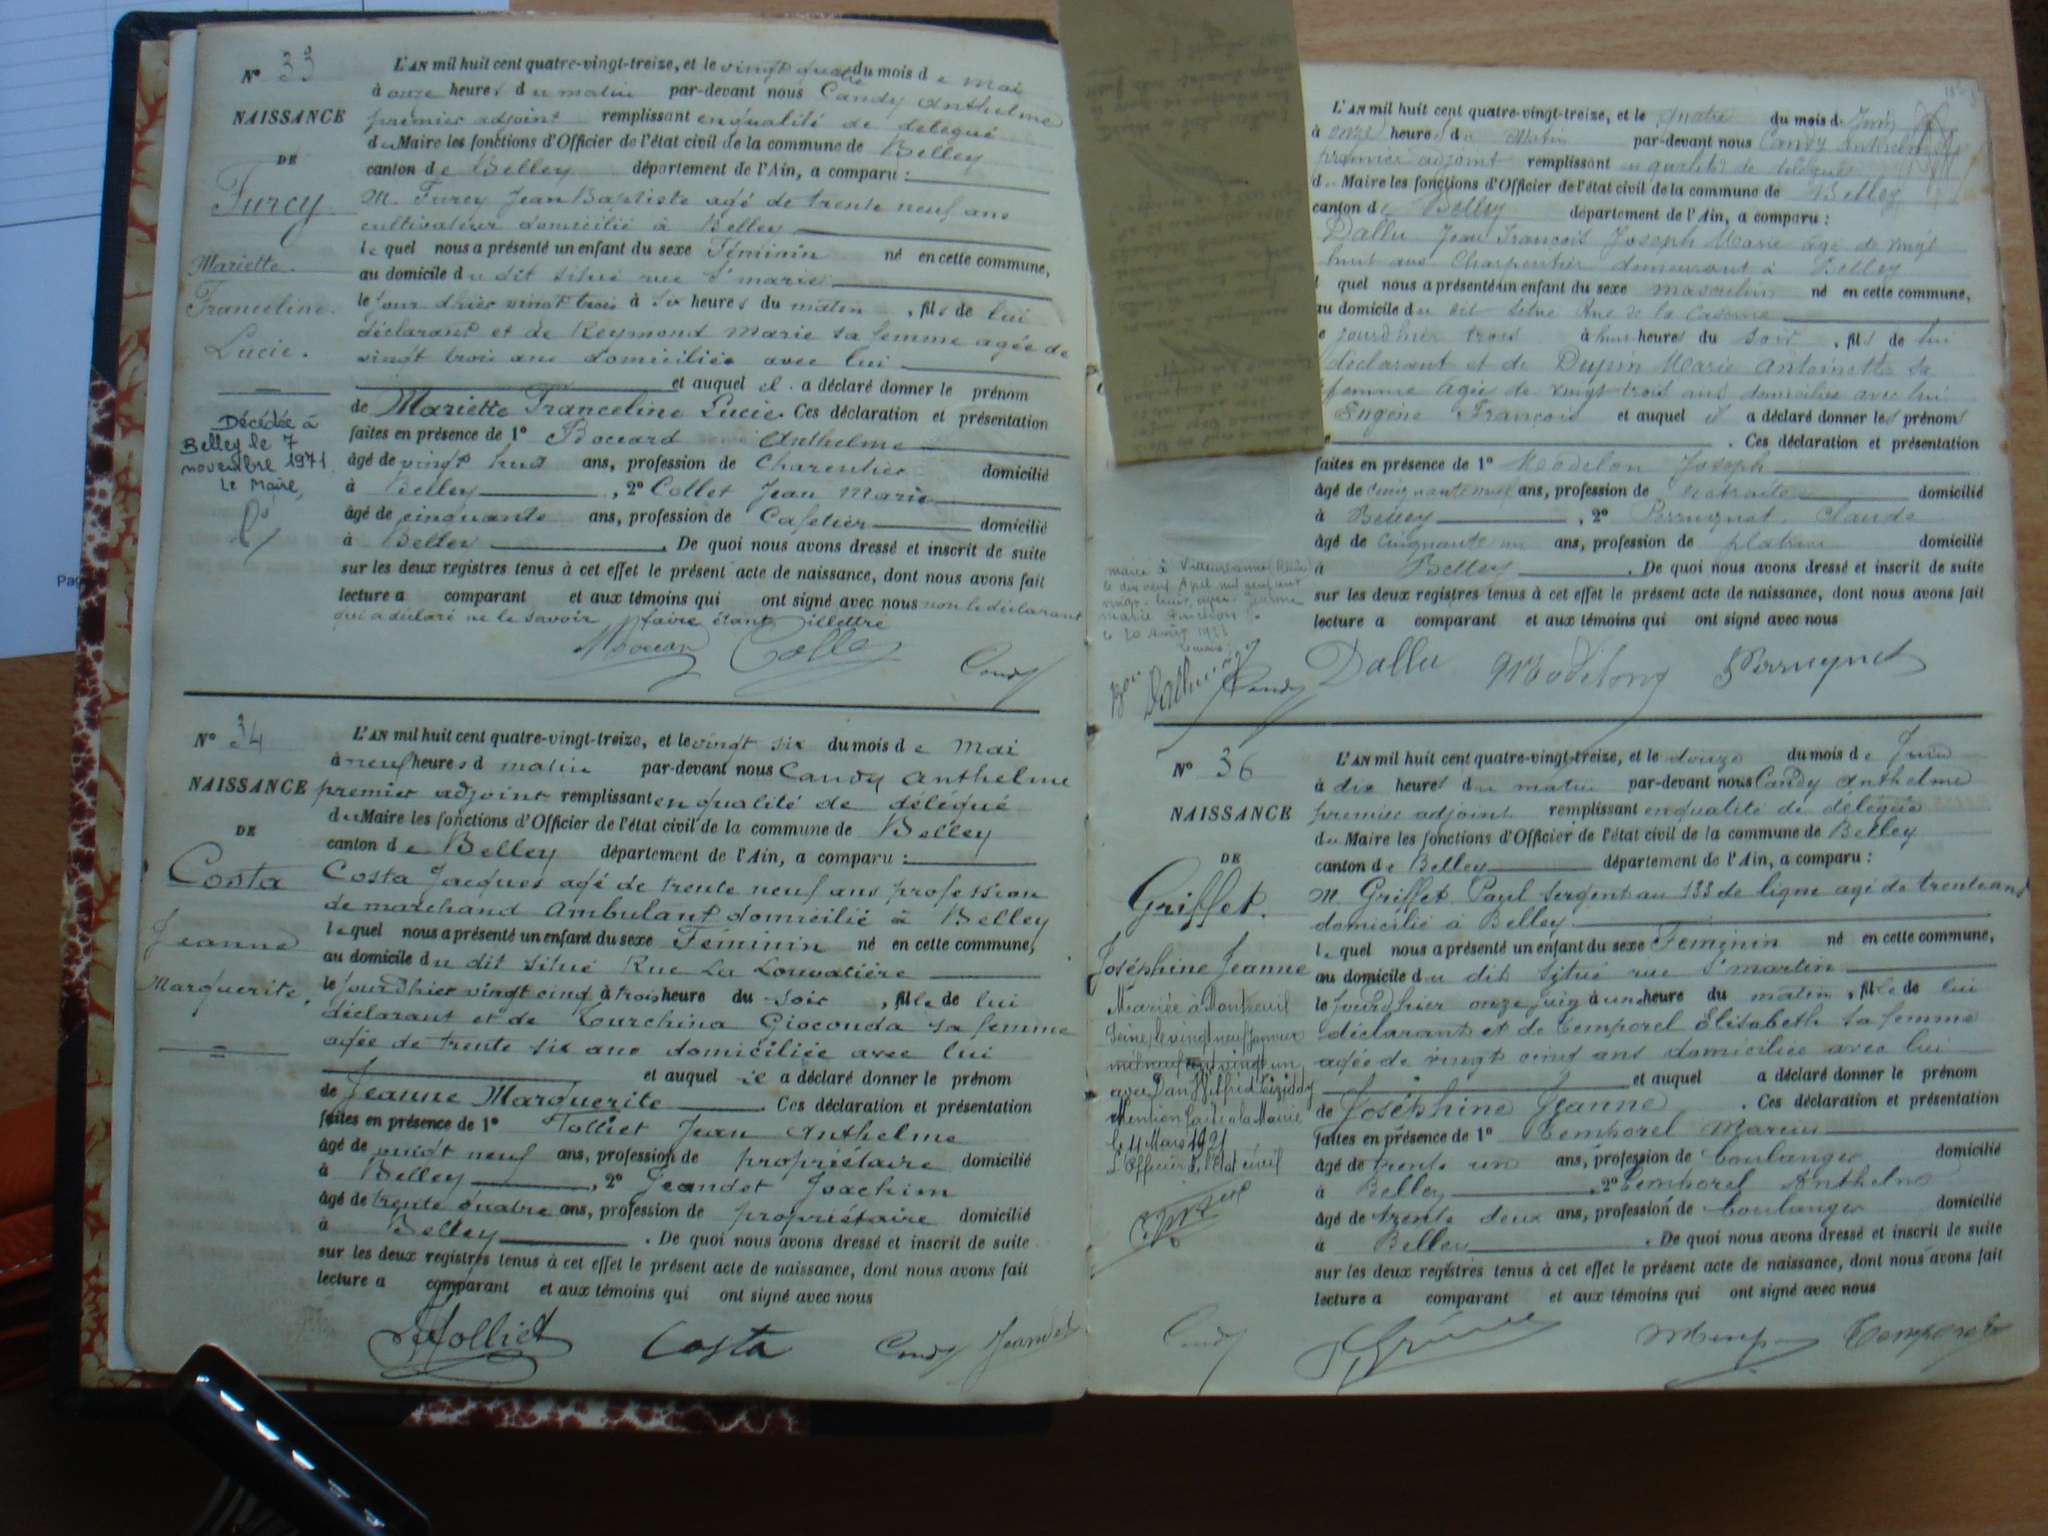 N° 33
NAISSANCE
DE
Furcy
Mariette
Franceline
Lucie.
Décédée à
Belley le 7
novembre 1971
Le Maire,
L'AN mil huit cent quatre-vingt-treize, et le vingt quatre du mois de mai
à onze heures du matin par-devant nous Candy Anthelme
premier adjoint remplissant en qualité de délégué
du Maire les fonctions d'Officier de l'état civil de la commune de Belley
canton de Belley département de l'Ain, a comparu :
M. Furcy Jean Baptiste agé de trente neuf ans
cultivateur domicilié à Belley
lequel nous a présenté un enfant du sexe Féminin né en cette commune,
au domicile du dit situé rue St marie
le jour d'hier vingt trois à six heures du matin, fils de lui
déclarant et de Reymond Marie sa femme agée de
vingt trois ans domiciliée avec lui
et auquel il a déclaré donner le prénom
de Mariette Franceline Lucie. Ces déclaration et présentation
faites en présence de 1° Boccard Anthelme
âgé de vingt huit ans, profession de Charentier domicilié
à Belley, 2° Collet Jean Marie
âgé de cinquante ans, profession de Cafetier domicilié
à Belley. De quoi nous avons dressé et inscrit de suite
sur les deux registres tenus à cet effet le présent acte de naissance, dont nous avons fait
lecture a comparant et aux témoins qui ont signé avec nous non le déclarant
qui a déclaré ne le savoir faire étant illettre
Candy
N° 34
NAISSANCE
DE
Costa
Jeanne
Marguerite.
L'AN mil huit cent quatre-vingt-treize, et le vingt six du mois de mai
à neuf heures d matin par-devant nous Candy Anthelme
premier adjoint remplissant en qualité de délégué
du Maire les fonctions d'Officier de l'état civil de la commune de Belley
canton de Belley département de l'Ain, a comparu :
Costa Jacques agé de trente neuf ans profession
de marchand Ambulant domicilié à Belley
lequel nous a présenté un enfant du sexe Féminin né en cette commune,
au domicile du dit situé Rue La Louvatière
le jourdhier vingt cinq à trois heure du soir, fille de lui
déclarant et de Tourchina Gioconda sa femme
agée de trente six ans domiciliée avec lui
et auquel il a déclaré donner le prénom
de Jeanne Marguerite. Ces déclaration et présentation
faites en présence de 1° Tolliet Jean Anthelme
âgé de vingt neuf ans, profession de propriétaire domicilié
à Belley, 2° Jeandet Joachim
âgé de trente quatre ans, profession de propriétaire domicilié
à Belley. De quoi nous avons dressé et inscrit de suite
sur les deux registres tenus à cet effet le présent acte de naissance, dont nous avons fait
lecture a comparant et aux témoins qui ont signé avec nous
Tolliet Costa Candy Jeandet
L'AN mil huit cent quatre-vingt-treize, et le quatre du mois de Juin
à onze heures du Matin par-devant nous Candy Anthelme
premier adjoint remplissant en qualité de délégué
du Maire les fonctions d'Officier de l'état civil de la commune de Belley
canton de Belley département de l'Ain, a comparu :
Dallu Jean François Joseph Marie âgé de vingt
huit ans Charpentier demeurant à Belley
l quel nous a présenté un enfant du sexe masculin né en cette commune,
au domicile du dit situé Rue de la Caserne
le jourdhier trois à huit heures du soir, fils de lui
déclarant et de Dupin Marie Antoinette sa
femme agée de vingt trois ans domiciliée avec lui
Eugène François et auquel il a déclaré donner les prénoms
. Ces déclaration et présentation
faites en présence de 1° Modelon Joseph
âgé de cinquante neuf ans, profession de retraité domicilié
à Belley, 2° Perruquet Claude
âgé de cinquante un ans, profession de platrier domicilié
à Belley. De quoi nous avons dressé et inscrit de suite
sur les deux registres tenus à cet effet le présent acte de naissance, dont nous avons fait
lecture a comparant et aux témoins qui ont signé avec nous
marié à Villeurbanne
Candy Dallu Perruquet
N° 36
NAISSANCE
DE
Griffet.
Joséphine Jeanne
Mariée à Montreuil
Seine, le vingt neuf Janvier
mil neuf cent vingt un
avec
Mention faite à la Mairie
le 11 Mars 1921
L'Officier de l'état civil
L'AN mil huit cent quatre-vingt-treize, et le douze du mois de Juin
à dix heures du matin par-devant nous Candy Anthelme
premier adjoint remplissant en qualité de délégué
du Maire les fonctions d'Officier de l'état civil de la commune de Belley
canton de Belley département de l'Ain, a comparu :
M Griffet Paul sergent au 133 de ligne agé de trente ans
domicilié à Belley
lequel nous a présenté un enfant du sexe Feminin né en cette commune,
au domicile du dit situé rue St martin
le jourdhier onze juin à une heure du matin, fille de lui
déclarant et de Temporel Elisabeth sa femme
agée de vingt cinq ans domiciliée avec lui
et auquel a déclaré donner le prénom
de Joséphine Jeanne. Ces déclaration et présentation
faites en présence de 1° Temporel Marius
âgé de trente un ans, profession de boulanger domicilié
à Belley, 2° Temporel Anthelme
âgé de trente deux ans, profession de boulanger domicilié
à Belley. De quoi nous avons dressé et inscrit de suite
sur les deux registres tenus à cet effet le présent acte de naissance, dont nous avons fait
lecture a comparant et aux témoins qui ont signé avec nous
Candy Temporel